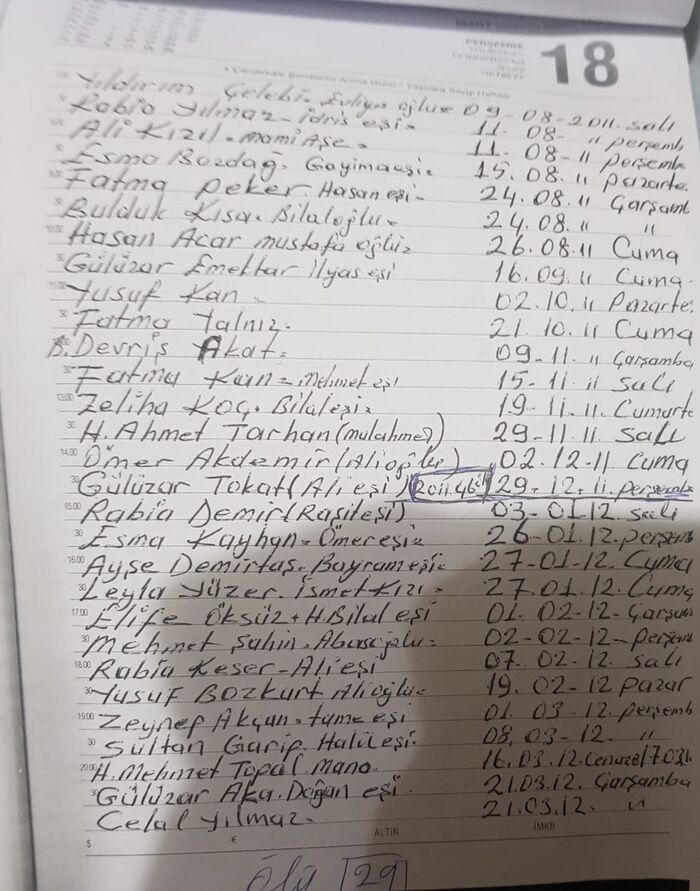 MART
PERŞEMBE
THURSDAY
DONNERSTAG
JEUDI
ЧЕТВЕРГ
18
• Çanakkale Şehitlerini Anma Günü / Yaşlılara Saygı Haftası
Yıldırım Çelebi. Evliya oğlu= 09-08-2011. salı
Rabia Yılmaz-idris eşi= 11. 08- " perşemb
Ali Kızıl-mami Aşe= 11. 08-11 perşemb
Esma Bozdağ. Gayimaeşi= 15. 08. " pazarte
Fatma peker. Hasan eşi- 24. 08. 11 Çarşamb
Bulduk Kısa. Bilaloğlu= 24. 08. " "
Hasan Acar mustafa oğlu= 26. 08. 11 Cuma
Gülüzar Emektar ilyas eşi 16. 09. 11 Cuma.
Yusuf Kan= 02. 10. 11 Pazarte
Fatma Yalnız. 21. 10. 11 Cuma
B. Devriş Akat= 09-11. 11 Çarşamba
Fatma Kan= Mehmet eşi 15-11. 11 Salı
Zeliha Koç. Bilaleşi= 19-11. 11. Cumarte
H. Ahmet Tarhan (mulahmed) 29-11. 11. Salı
Ömer Akdemir (Alioğlu) 02. 12-11 Cuma
Gülüzar Tokat (Ali eşi) 29-12-11. perşemb
Rabia Demir (Raşiteşi) 03-01. 12. salı
Esma Kayhan= Ömereşi= 26-01. 12. perşemb
Ayşe Demirtaş. Bayrameşi= 27-01-12. Cuma
Leyla Yüzer. İsmet Kızı= 27. 01. 12. Cuma
Elife Öksüz + H. Bilal eşi 01. 02-12- Çarşam
Mehmet Şahin. Abasoğlu= 02-02-12- perşem
Rabia Keser-Ali eşi 07. 02-12. salı
Yusuf Bozkurt Alioğlu= 19. 02-12 pazar
Zeynep Akçan= tume eşi 01. 03. 12. perşemb
Sultan Garip. Halileşi. 08. 03-12. "
H. Mehmet Topal. mano. 16. 03. 12. Cenaze 17.03.
Gülüzar Aka. Doğan eşi. 21. 03. 12. Çarşamba
Celal Yılmaz. 21. 03. 12. "
$ € ALTIN İMKB
Ölü 29